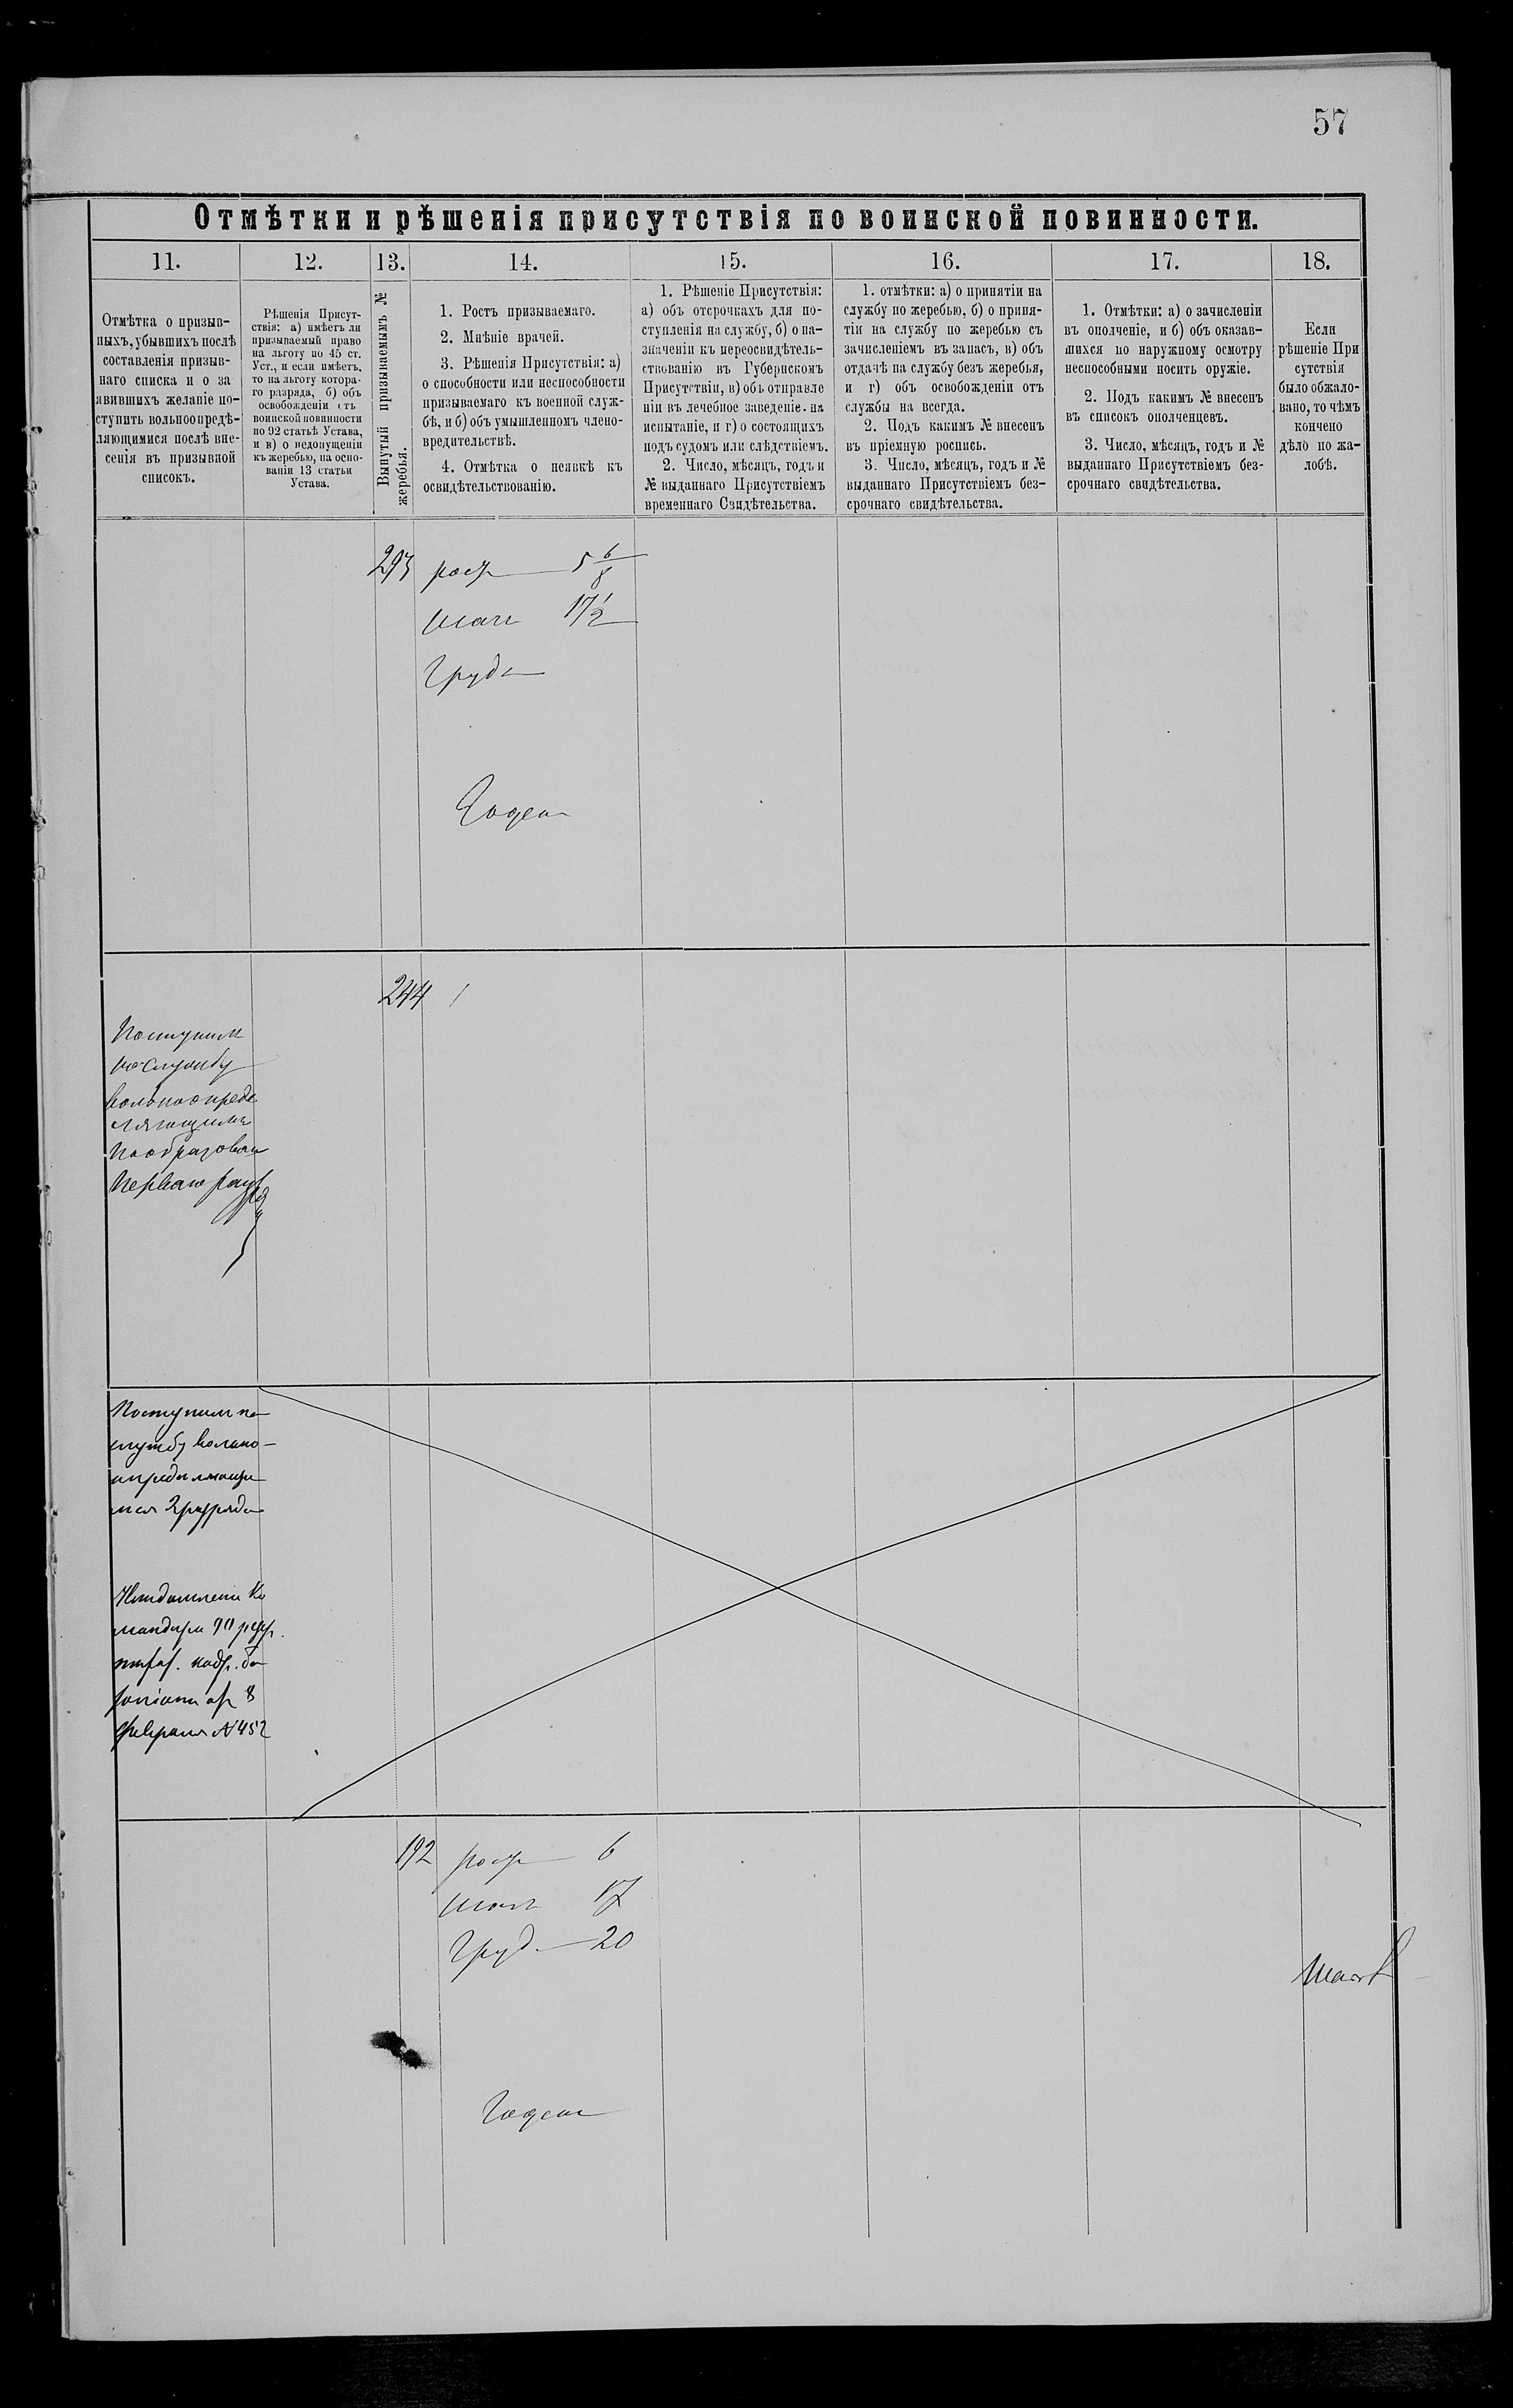 57
Отмѣтки и рѣшенія присутствія по воинской повинности.
11. 12. 13. 14. 15. 16. 17. 18.
Отмѣтка о призыв-
ныхъ, убывшихъ послѣ
составленія призыв-
наго списка и о за
явившихъ желаніе по-
ступить вольноопредѣ-
ляющимися послѣ вне-
сенія въ призывной
списокъ.
Рѣшенія Присут-
ствія: а) имѣетъ ли
призываемый право
на льготу по 45 ст.
Уст., и если имѣетъ,
то на льготу котора-
го разряда, б) объ
освобожденіи отъ
воинской повинности
по 92 статьѣ Устава,
и в) о недопущеніи
къ жеребью, на осно-
ваніи 13 статьи
Устава.
Вынутый призываемымъ №
жеребья.
1. Ростъ призываемаго.
2. Мнѣніе врачей.
3. Рѣшенія Присутствія: а)
о способности или неспособности
призываемаго къ военной служ-
бѣ, и б) объ умышленномъ члено-
вредительствѣ.
4. Отмѣтка о неявкѣ къ
освидѣтельствованію.
1. Рѣшеніе Присутствія:
а) объ отсрочкахъ для по-
ступленія на службу, б) о на-
значеніи къ переосвидѣтель-
ствованію въ Губернскомъ
Присутствіи, в) объ отправле
ніи въ лечебное заведеніе на
испытаніе, и г) о состоящихъ
подъ судомъ или слѣдствіемъ.
2. Число, мѣсяцъ, годъ и
№ выданнаго Присутствіемъ
временнаго Свидѣтельства.
1. отмѣтки: а) о принятіи на
службу по жеребью, б) о приня-
тіи на службу по жеребью съ
зачисленіемъ въ запасъ, в) объ
отдачѣ на службу безъ жеребья,
и г) объ освобожденіи отъ
службы на всегда.
2. Подъ какимъ № внесенъ
въ пріемную роспись.
3. Число, мѣсяцъ, годъ и №
выданнаго Присутствіемъ без-
срочнаго свидѣтельства.
1. Отмѣтки: а) о зачисленіи
въ ополченіе, и б) объ оказав-
шихся по наружному осмотру
неспособными носить оружіе.
2. Подъ какимъ № внесенъ
въ списокъ ополченцевъ.
3. Число, мѣсяцъ, годъ и №
выданнаго Присутствіемъ без-
срочнаго свидѣтельства.
Если
рѣшеніе При
сутствія
было обжало-
вано, то чѣмъ
кончено
дѣло по жа-
лобѣ.
293 рост 5 6/8
17 1/2
Груди
Годен
244
Поступил
на службу
вольноопреде
ляющимся
по образован
перваго разряда
Поступил на
службу вольно-
определяющи
мся 2 разряда
Уведомление Ко
мандира 90 резер.
пехот. кадр. ба
талiона от 8
февраля № 452
192 рост 6
17
Груд 20
Годен